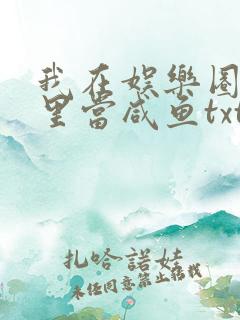 我在娱樂圈
里當咸鱼txt
扎哈諾娃
未经同意禁止转载